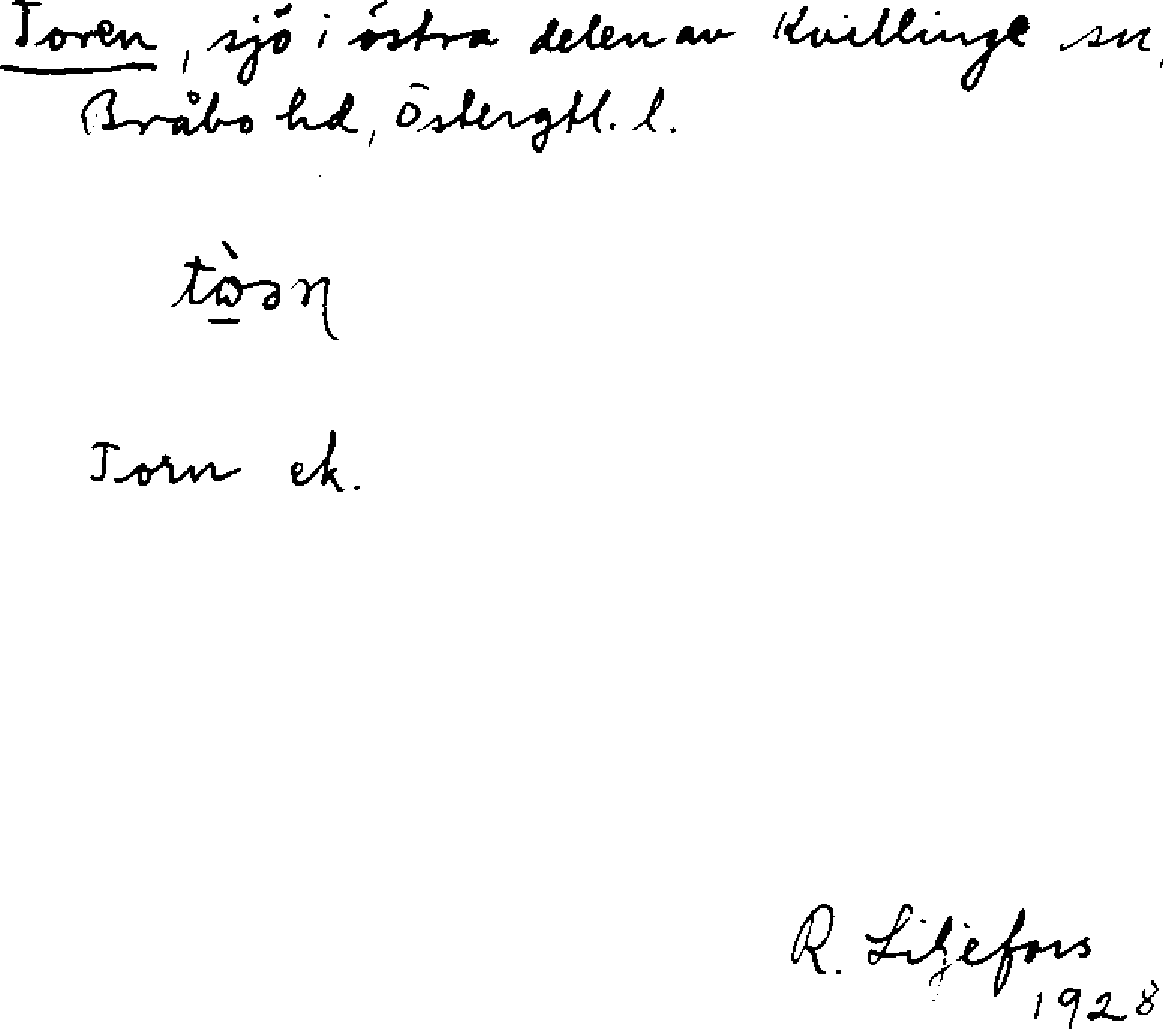 Toren, sjö i östra delen av Kvillinge sn,
Bråbo hd, Östergtl. l.
tὼ̱əɳ
Torn ek.
R. Liljefors
1928